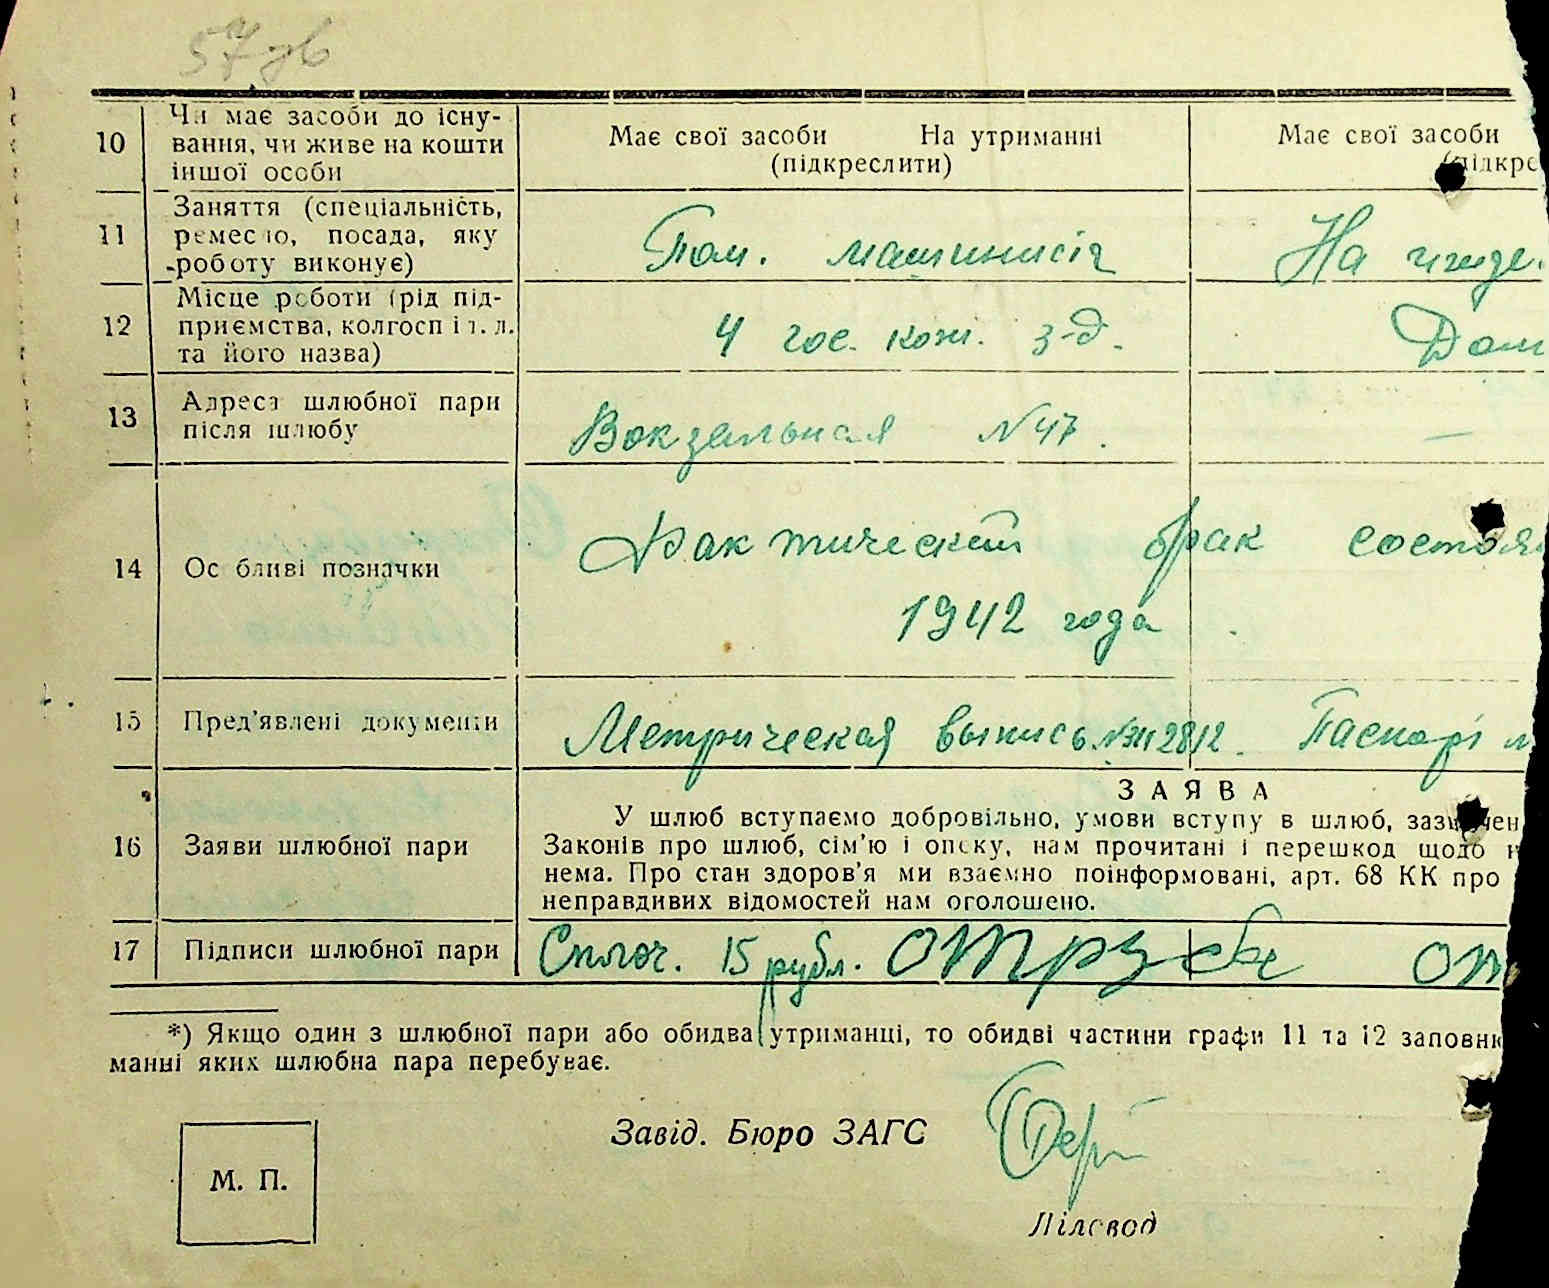 57 зв
10 Чи має засоби до існу-
вання, чи живе на кошти
іншої особи
Має свої засоби На утриманні
(підкреслити)
Має свої засоби
(підкре
11 Заняття (спеціальність,
ремесло, посада, яку
роботу виконує)
Пом. машиниста
На ижде.
12 Місце роботи (рід під-
приємства, колгосп і т. п.
та його назва)
4 гос. кож. з-д.
Дом
13 Адреса шлюбної пари
після шлюбу
Вокзальная N 47.
—
14 Особливі позначки
Фактический брак состоя
1942 года.
15 Пред’явлені документи
Метрическая выпись № 2812. Паспорт
ЗАЯВА
16 Заяви шлюбної пари
У шлюб вступаємо добровільно, умови вступу в шлюб, зазначен
Законів про шлюб, сім’ю і опіку, нам прочитані і перешкод щодо н
нема. Про стан здоров’я ми взаємно поінформовані, арт. 68 КК про
неправдивих відомостей нам оголошено.
17 Підписи шлюбної пари
Сплоч. 15 рубл.
*) Якщо один з шлюбної пари або обидва утриманці, то обидві частини графи 11 та 12 заповн
манні яких шлюбна пара перебуває.
Завід. Бюро ЗАГС
М. П.
Діловод